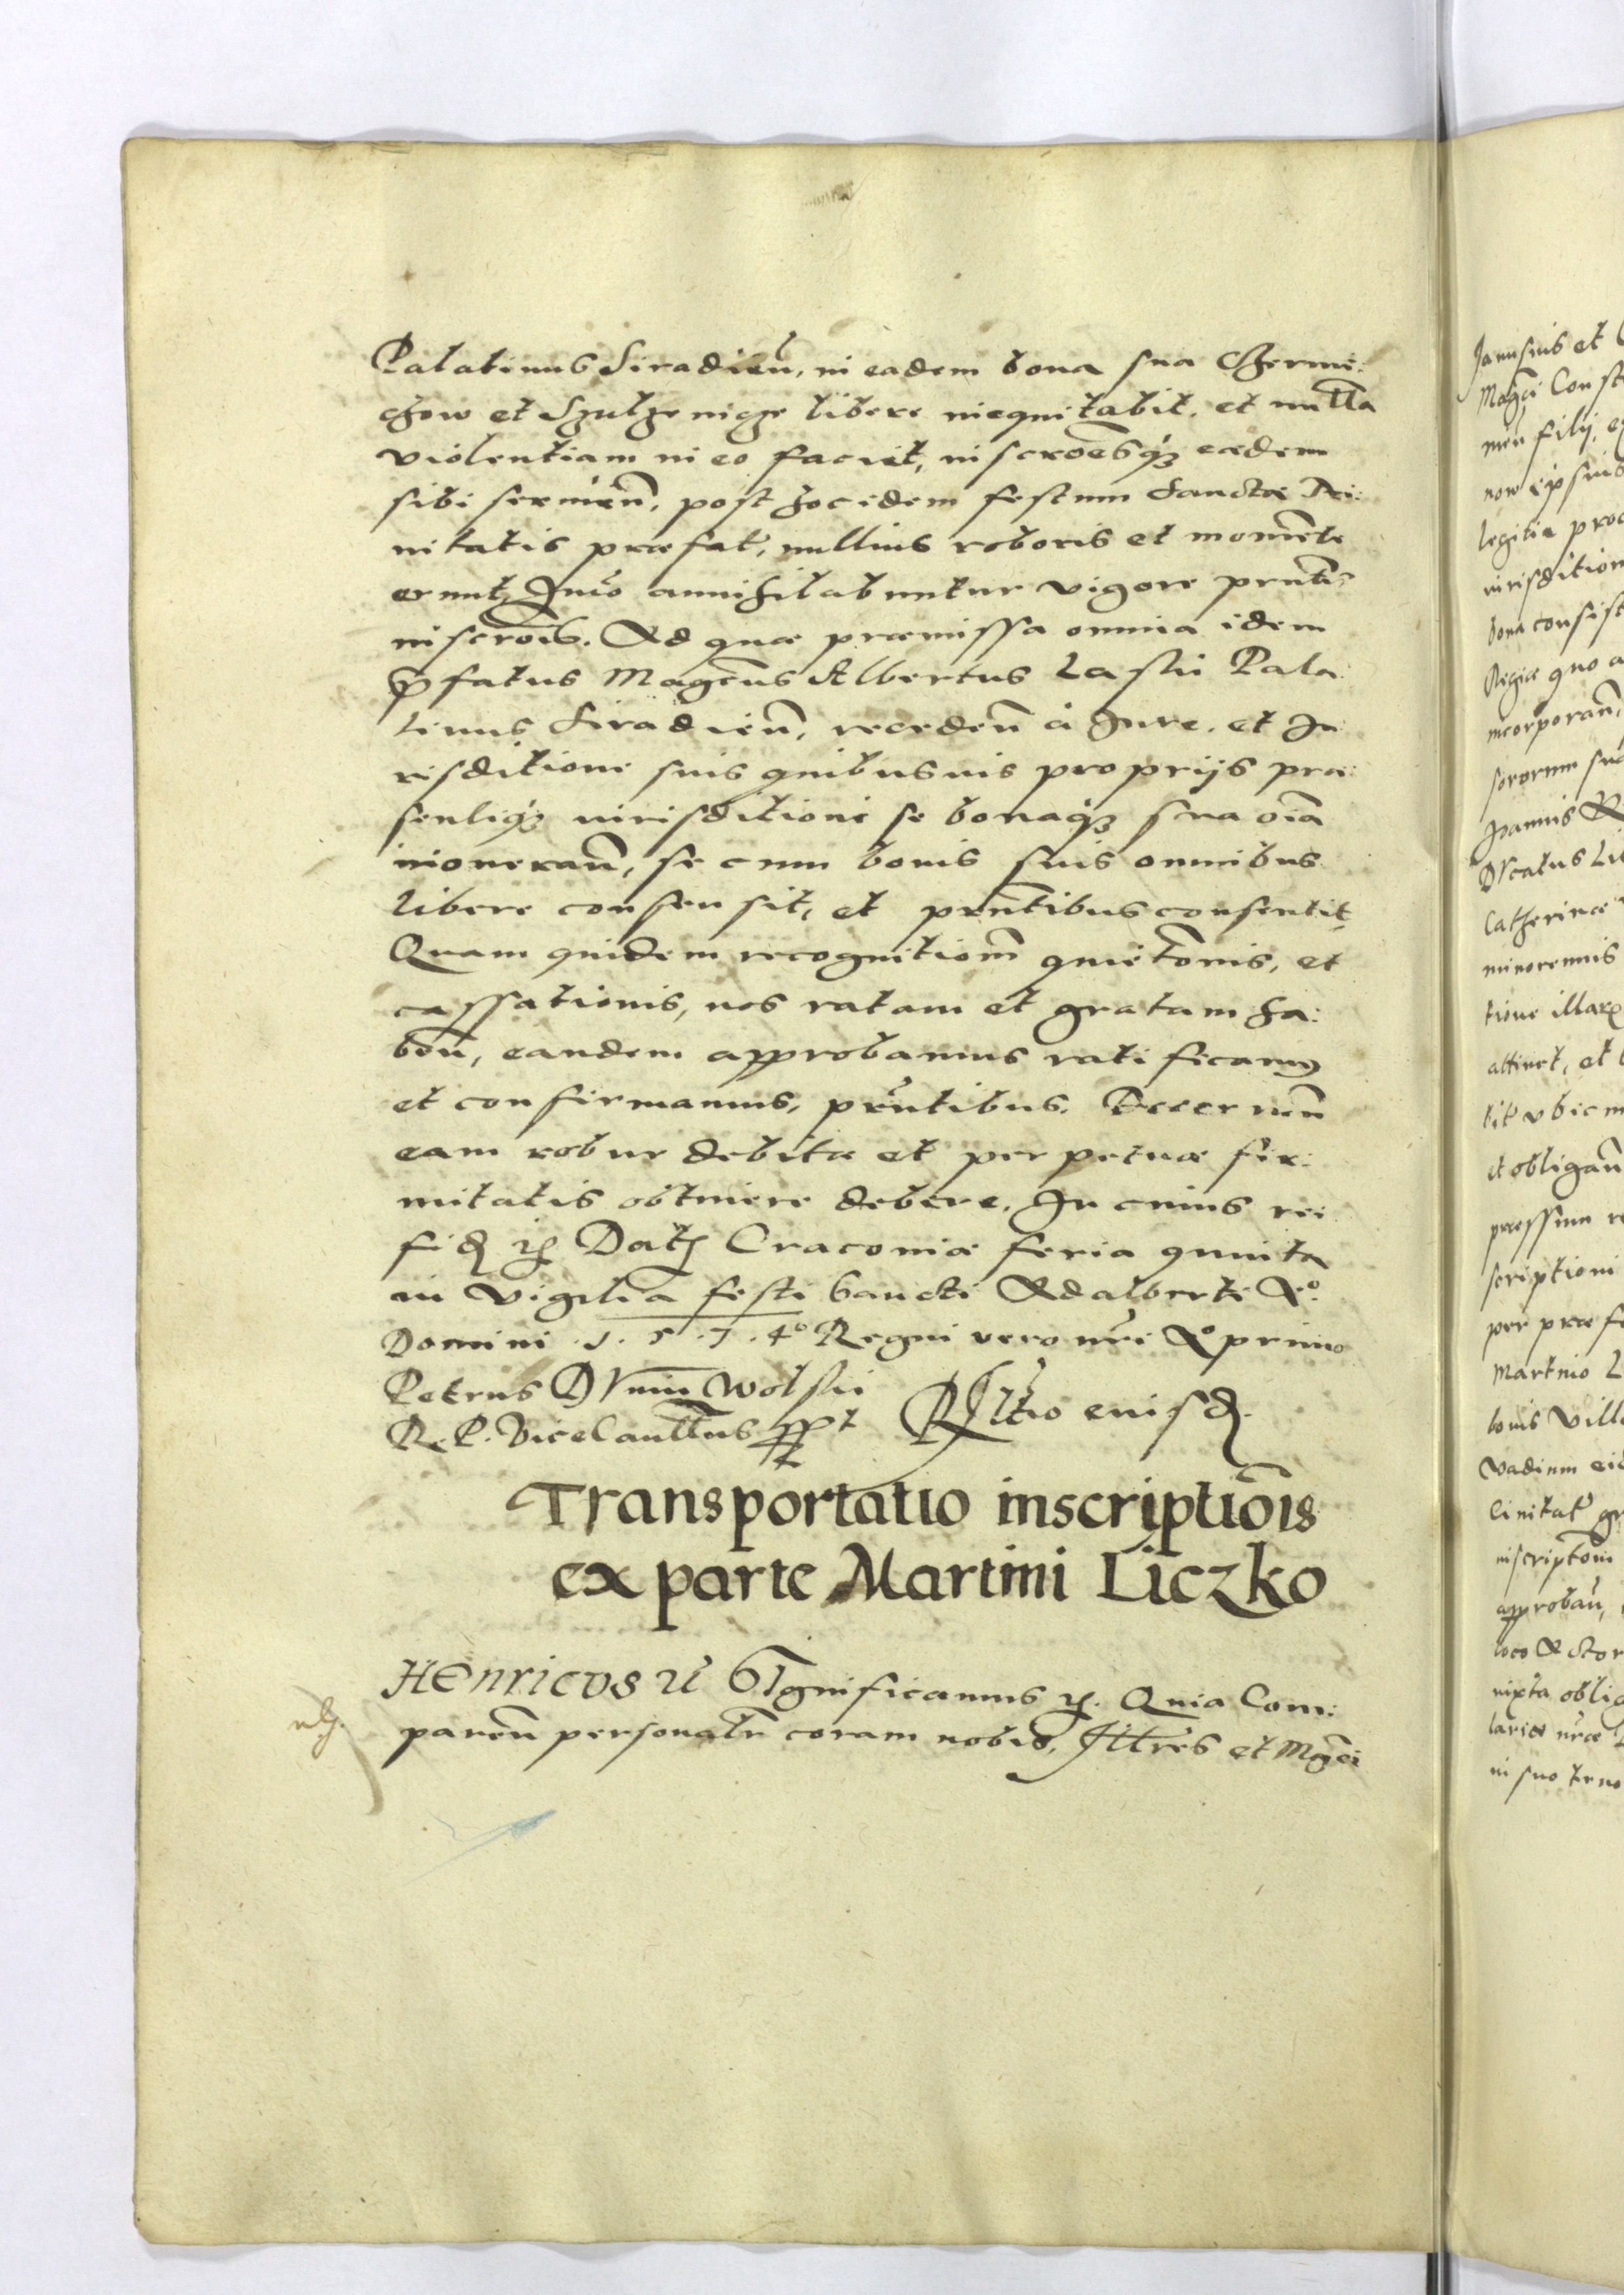 Palatinus Siradien̄, in eadem bona sua Chrzemi:
chow et Szulzenicze libere inequitabit, et nulla
violentiam in eo faciet, inscrōesq₃ eædem
sibi servien̄, post hoc idem festum Sanctæ Tri:
nitatis præfat', nullius roboris et momenti
erunt, Imo annihilabuntur vigore prn̄tis
inscrōis. Ad quæ præmissa omnia idem
p̄fatus Magcūs Albertus Laski Pala:
tinus Siradien̄, receden̄ à Jure, et Ju:
risditione suis quibusuis proprijs præ:
sentiq₃ iurisditioni se bonaq₃ sua oīa
inoneran̄, se cum bonis suis omnibus
libere consensit, et prn̄tibus consentit,
Quam quidem recognitionē quietōnis, et
cassationis, nos ratam et gratam ha:
ben̄, eandem approbamus ratificamus
et confirmamus, prn̄tibus. Decernen̄
eam robur debitæ et perpetuæ fir:
mitatis obtinere debere. In cuius rei
fid ꝛc Dat Cracoviæ feria quinta
in vigilia festi Sancti Adalberti Aº
Domini .1.5.7.4º Regni vero nr̄i Aº primo
Petrus Dunin Wolski
R. P. Vicecancllrūs sspt Rltio eiusd.
Transportatio inscriptiōis
ex parte Martini Liczko
HEnricvs ꝛc Significamus ꝛc. Quia Com:
paren̄ personalr̄ coram nobis, Illtres et Mgcī
Janusius et
Magci Const
men filij, e
now ipsius
legitia proc
iurisdition
bona consist
Regiæ quo a
incorporan̄,
sororum sua
Joannis
Dvcatus Li
Catherinæ
minorennis
tione illarꝫ
attinet, et
tit vbicun
et obligan̄
præssum re
scriptioni
per præfa
Martino L
bonis vill
Vadium eid
Civitat' gr
inscriptōni
approban̄,
loco Actor
iuxta oblig
lariæ nr̄æ
in suo terno